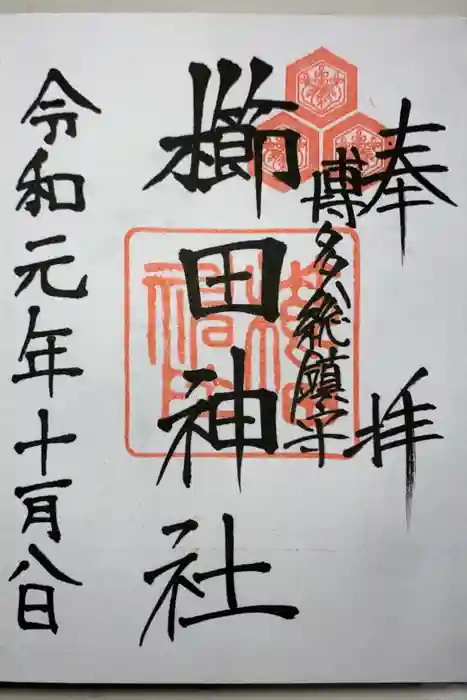 奉拝
博多総鎮守
櫛田神社
令和元年十一月八日